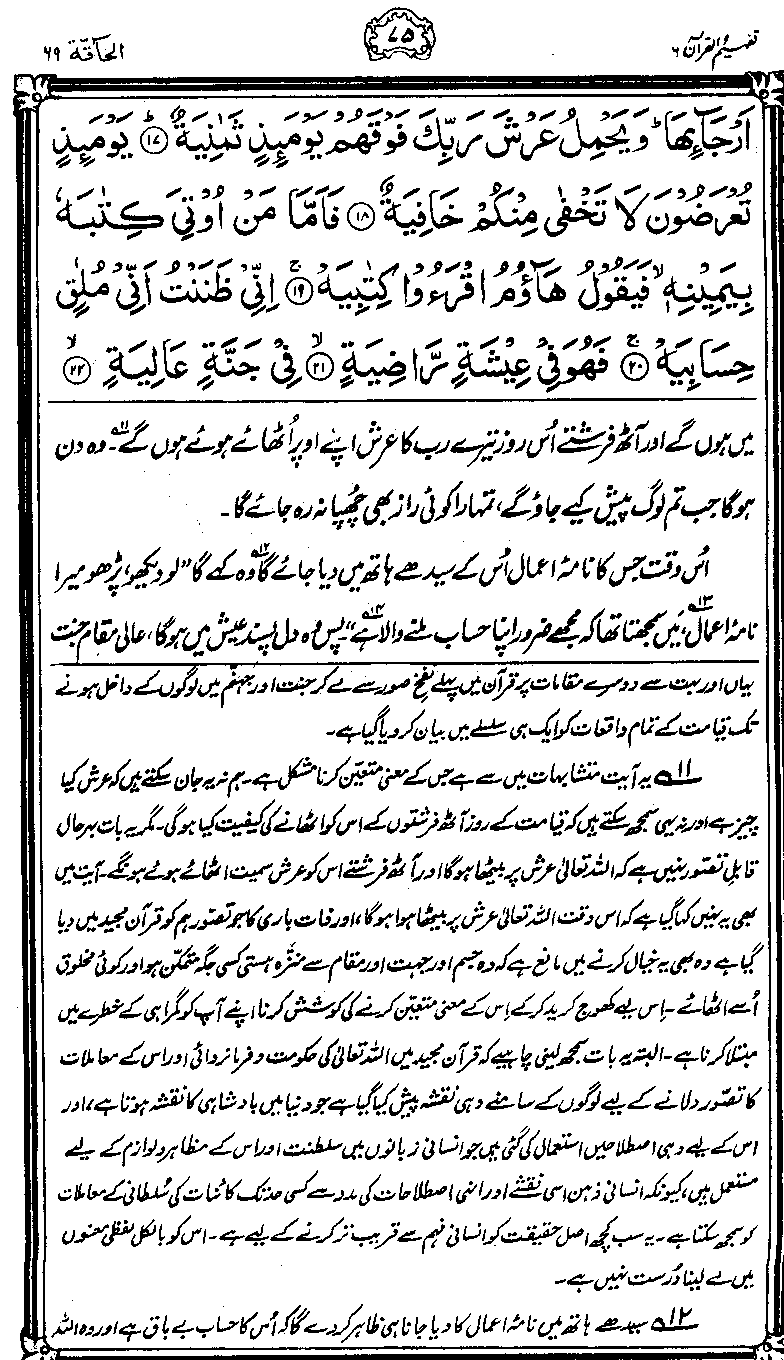 تفہیم القرآن ۶
۷۵
الحآقّۃ ۶۹
اَرْجَآئِهَا ؕ وَيَحْمِلُ عَرْشَ رَبِّكَ فَوْقَهُمْ يَوْمَئِذٍ ثَمٰنِيَةٌ ؕ ۱۷ يَوْمَئِذٍ
تُعْرَضُوْنَ لَا تَخْفٰى مِنْكُمْ خَافِيَةٌ ۱۸ فَاَمَّا مَنْ اُوْتِيَ كِتٰبَهٗ
بِيَمِيْنِهٖ ۙ فَيَقُوْلُ هَآؤُمُ اقْرَءُوْا كِتٰبِيَهْ ۚ ۱۹ اِنِّيْ ظَنَنْتُ اَنِّيْ مُلٰقٍ
حِسَابِيَهْ ۚ ۲۰ فَهُوَ فِيْ عِيْشَةٍ رَّاضِيَةٍ ۙ ۲۱ فِيْ جَنَّةٍ عَالِيَةٍ ۙ ۲۲
میں ہوں گے اور آٹھ فرشتے اُس روز تیرے رب کا عرش اپنے اوپر اُٹھائے ہوئے ہوں گے ۱۱۔ وہ دن
ہوگا جب تم لوگ پیش کیے جاؤ گے، تمہارا کوئی راز بھی چھپا نہ رہ جائے گا۔
اُس وقت جس کا نامۂ اعمال اُس کے سیدھے ہاتھ میں دیا جائے گا ۱۲ وہ کہے گا "لو دیکھو، پڑھو میرا
نامۂ اعمال ۱۳، میں سمجھتا تھا کہ مجھے ضرور اپنا حساب ملنے والا ہے ۱۴"۔ پس وہ دل پسند عیش میں ہوگا، عالی مقام جنت
یہاں اور بہت سے دوسرے مقامات پر قرآن میں پہلے نفخ صور سے لے کر جنت اور جہنم میں لوگوں کے داخل ہونے
تک قیامت کے تمام واقعات کو ایک ہی سلسلے میں بیان کر دیا گیا ہے۔
۱۱ یہ آیت متشابہات میں سے ہے جس کے معنی متعیّن کرنا مشکل ہے۔ ہم نہ یہ جان سکتے ہیں کہ عرش کیا
چیز ہے اور نہ یہی سمجھ سکتے ہیں کہ قیامت کے روز آٹھ فرشتوں کے اس کو اٹھانے کی کیفیت کیا ہوگی۔ مگر یہ بات بہرحال
قابلِ تصور نہیں ہے کہ اللہ تعالیٰ عرش پر بیٹھا ہوگا اور آٹھ فرشتے اس کو عرش سمیت اٹھائے ہوئے ہونگے۔ آیت میں
بھی یہ نہیں کہا گیا ہے کہ اس وقت اللہ تعالیٰ عرش پر بیٹھا ہوا ہوگا، اور ذات باری کا جو تصور ہم کو قرآن مجید میں دیا
گیا ہے وہ بھی یہ خیال کرنے میں مانع ہے کہ وہ جسم اور جہت اور مقام سے منزّہ ہستی کسی جگہ متمکّن ہو اور کوئی مخلوق
اُسے اٹھائے۔ اِس لیے کھوج کرید کر کے اِس کے معنی متعیّن کرنے کی کوشش کرنا اپنے آپ کو گمراہی کے خطرے میں
مبتلا کرنا ہے۔ البتہ یہ بات سمجھ لینی چاہیے کہ قرآن مجید میں اللہ تعالیٰ کی حکومت و فرمانروائی اور اس کے معاملات
کا تصّور دلانے کے لیے لوگوں کے سامنے وہی نقشہ پیش کیا گیا ہے جو دنیا میں بادشاہی کا نقشہ ہوتا ہے، اور
اس کے لیے وہی اصطلاحیں استعمال کی گئی ہیں جو انسانی زبانوں میں سلطنت اور اس کے مظاہر و لوازم کے لیے
مستعمل ہیں، کیونکہ انسانی ذہن اسی نقشے اور انہی اصطلاحات کی مدد سے کسی حد تک کائنات کی سُلطانی کے معاملات
کو سمجھ سکتا ہے۔ یہ سب کچھ اصل حقیقت کو انسانی فہم سے قریب تر کرنے کے لیے ہے۔ اس کو بالکل لفظی معنوں
میں لے لینا دُرست نہیں ہے۔
۱۲ سیدھے ہاتھ میں نامۂ اعمال کا دیا جانا ہی ظاہر کر دے گا کہ اُس کا حساب بے باق ہے اور وہ اللہ